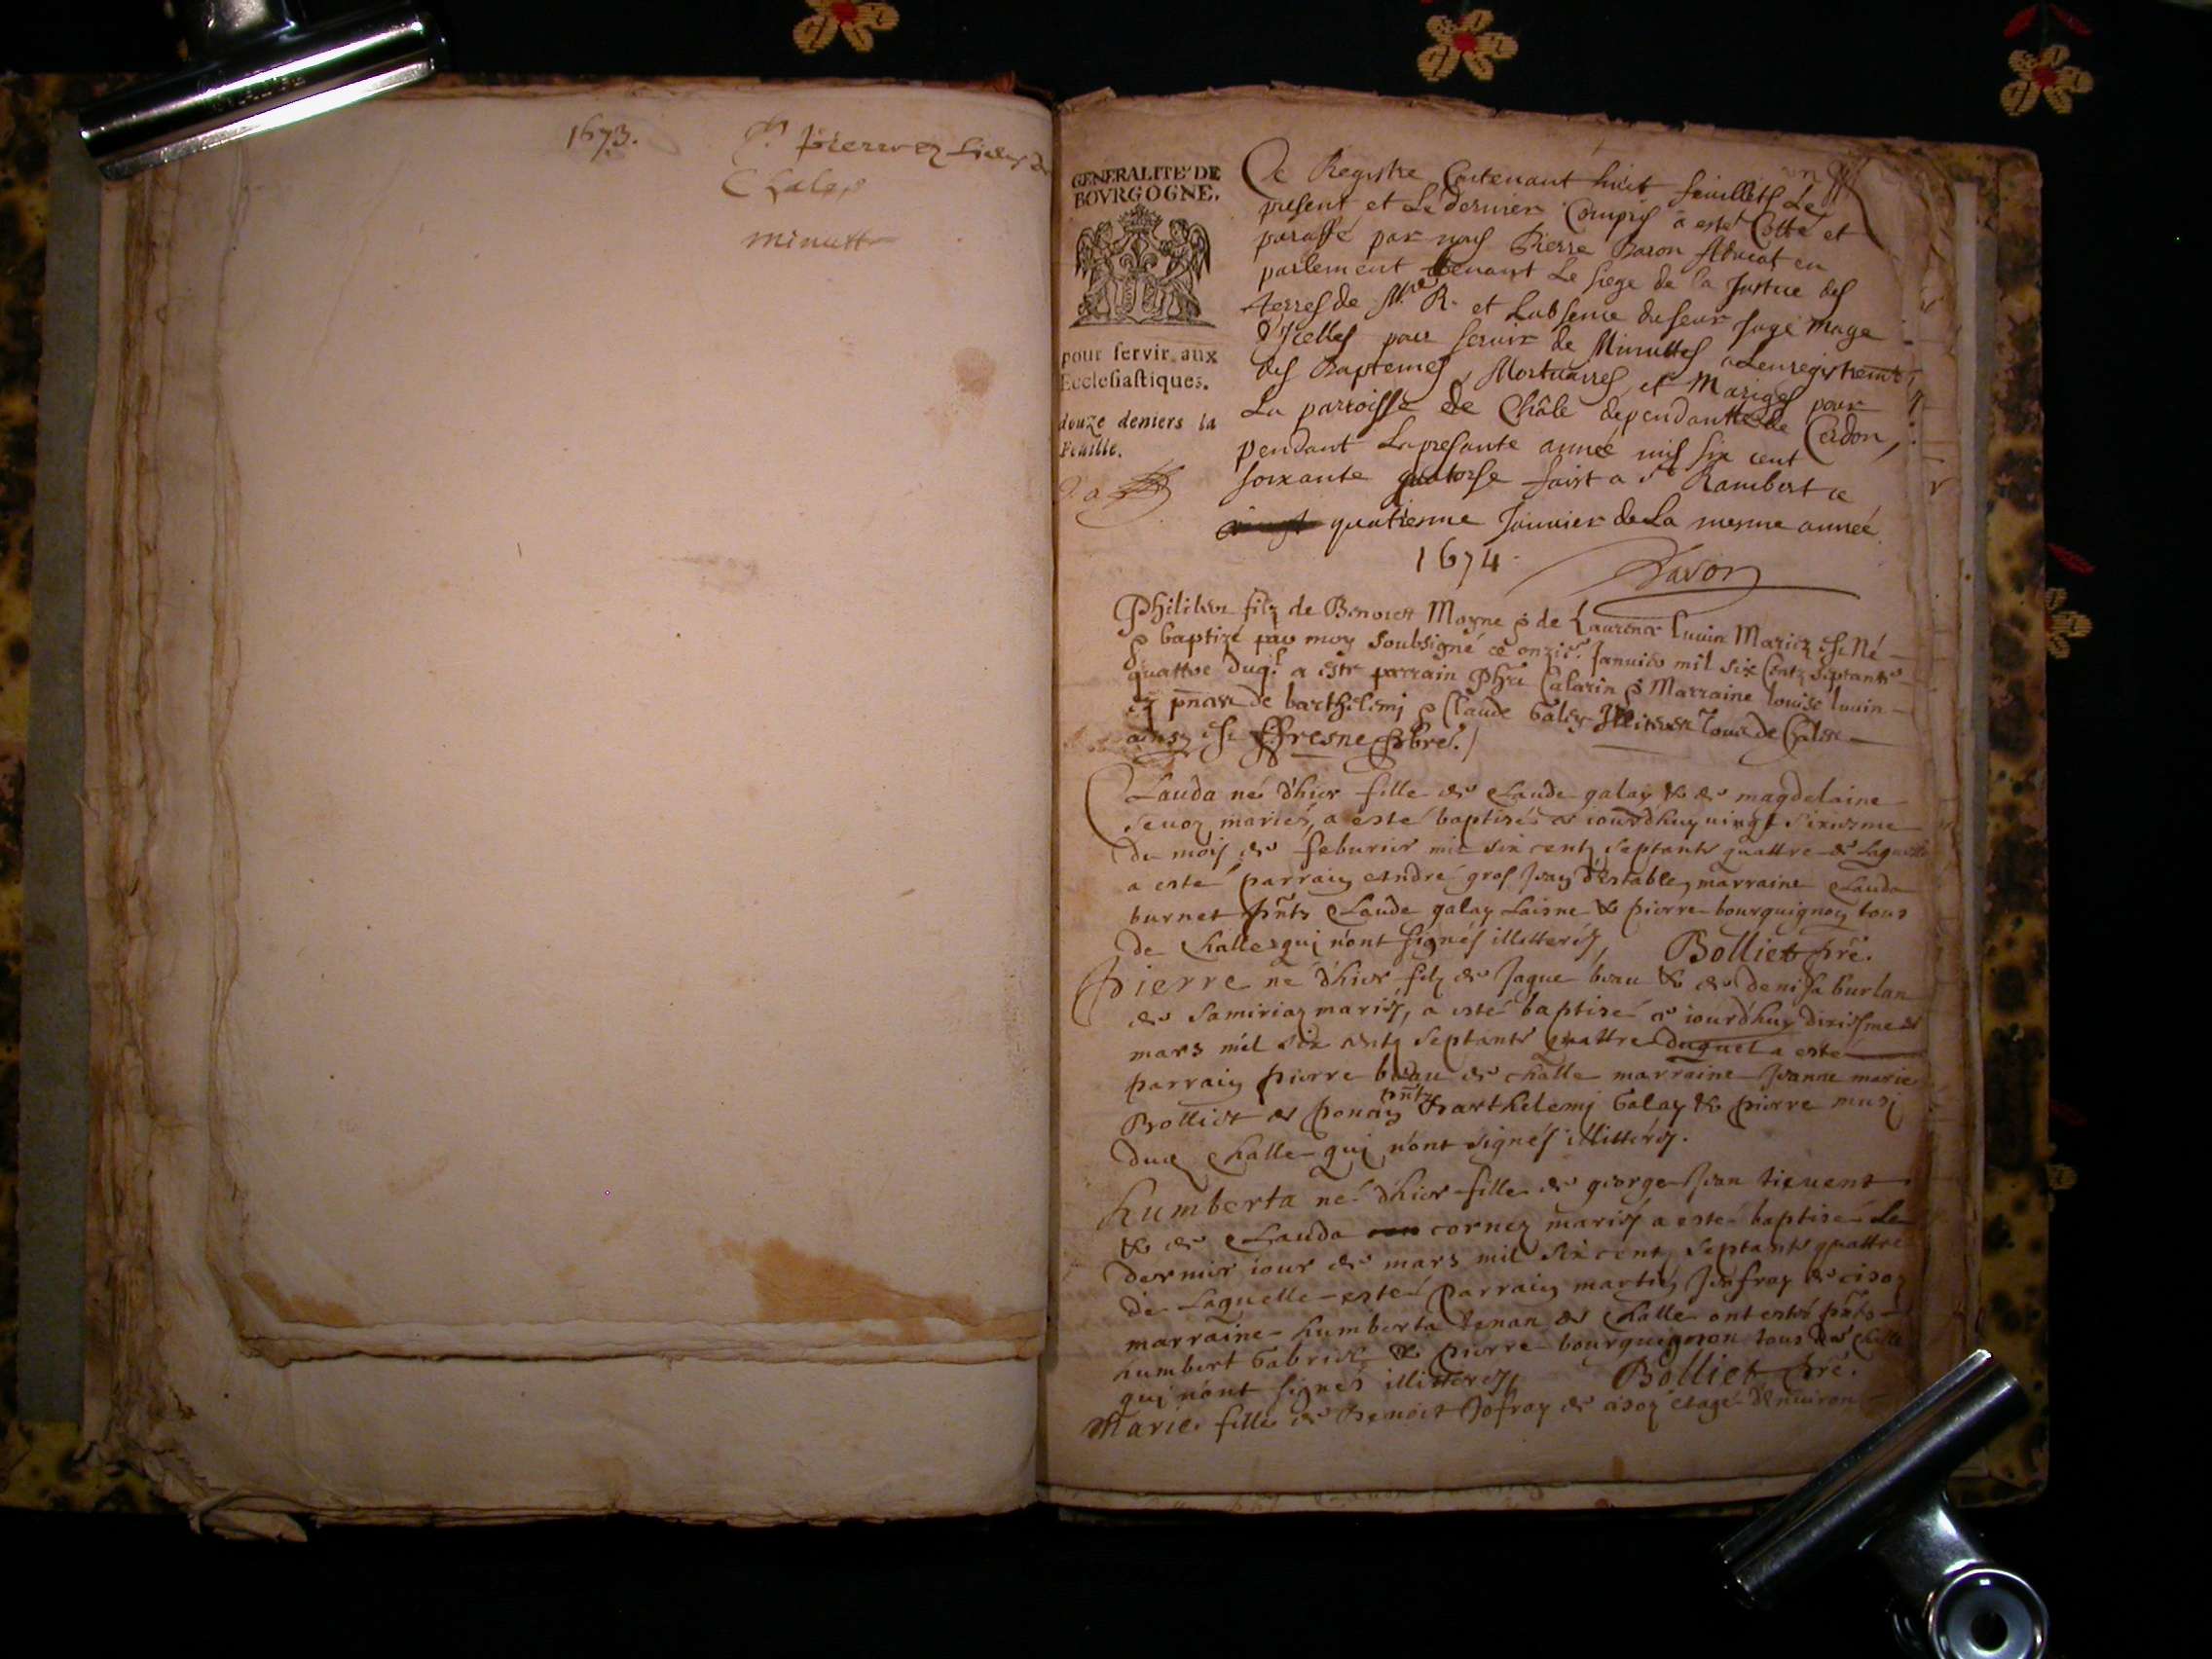 1673.
St pierre
Chales
minutte
GENERALITE' DE
BOVRGOGNE.
pour servir aux
Ecclesiastiques.
douze deniers la
Feuille.
un
Ce Registre Contenant huict feuillets Le
present et Le dernier Compris a esté Cotté et
paraffé par nous Pierre Baron Aduocat en
parlement tenant Le siege de la Justice des
terres de M. R. et Labsence du sieur Juge mage
d'Icelles pour seruir de Minuttes a Lenregistrement
des Baptemes, Mortuaires et Mariges pour
La parroisse de Châle dependantte de Cerdon,
pendant La presante année mil six cent
soixante quatorse faict a St Rambert ce
quatriesme Januier de La mesme année
1674.
filz de Benoict Moyne & de Laurence luuin Mariez Né
& baptizé par moy soubsigné ce onzie. Januier mil six Centz septante
quattre duql. a este parrain Calarin & Marraine louise luuin
de barthelemj & Claude Galey Tous de
ffresne pbre.
Clauda né d'hier fille de Claude galay & de magdelaine
mariés, a esté baptisée ce iourdhuy uingt sixiesme
du mois de feburier mil six centz septante quattre de Laquelle
a esté parrain Andre gros Jean d'Estables marraine Clauda
burnet pnts Claude galay Laisne & pierre bourguignon tous
de challes qui n'ont signés illitterés, Bolliet pre.
Pierre né d'hier filz de Jaque beau & de denisa burlan
de Samiriaz mariés, a esté baptisé ce iourdhuy dixiesme de
mars mil six centz septante quattre duquel a esté
parrain pierre beau de challe marraine Jeanne marie
Bolliet de poncin pnts barthelemj Galay & pierre musj
challe qui n'ont signés illitterés.
humberta né d'hier fille de george Jean tieuent
& de Clauda cornez mariés a esté baptisé Le
dernier iour de mars mil six centz septante quattre
de Laquelle esté parrain martin Jofray de cison
marraine humberta tenan de Challe ont estés pnts
humbert Gabriel & pierre bourguignon tous de challe
qui n'ont signés illitterés, Bolliet pre.
Marie fille de Benoit Jofray de cison etagé d'enuiron